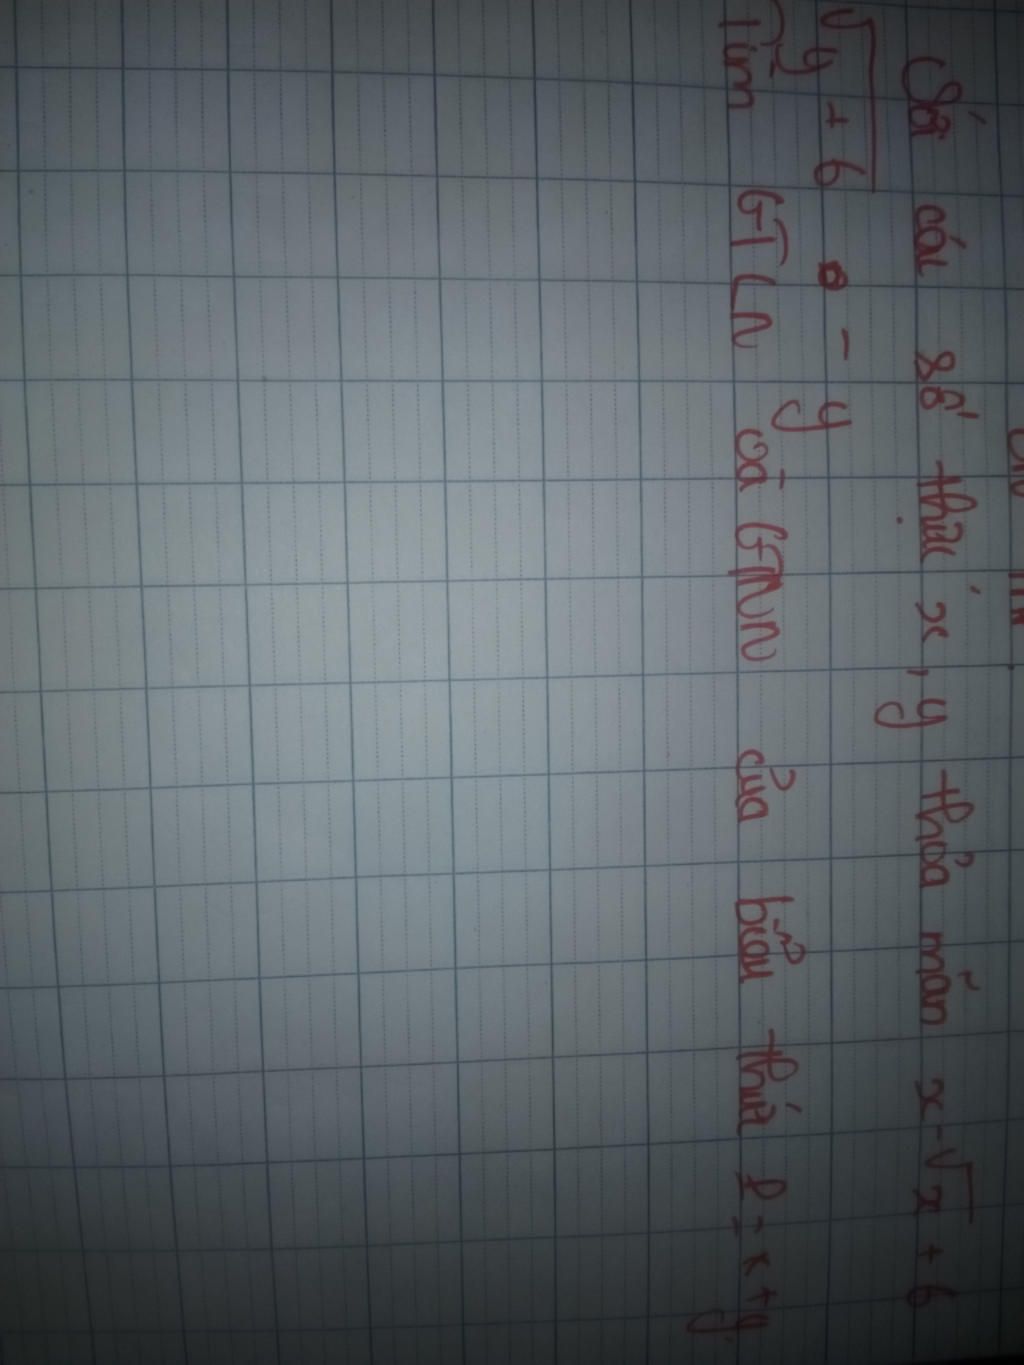 Số các số thực x, y thỏa mãn x - √x + 6
√y + 6 - y
Tìm GTLN và GTNN của biểu thức P = x + y